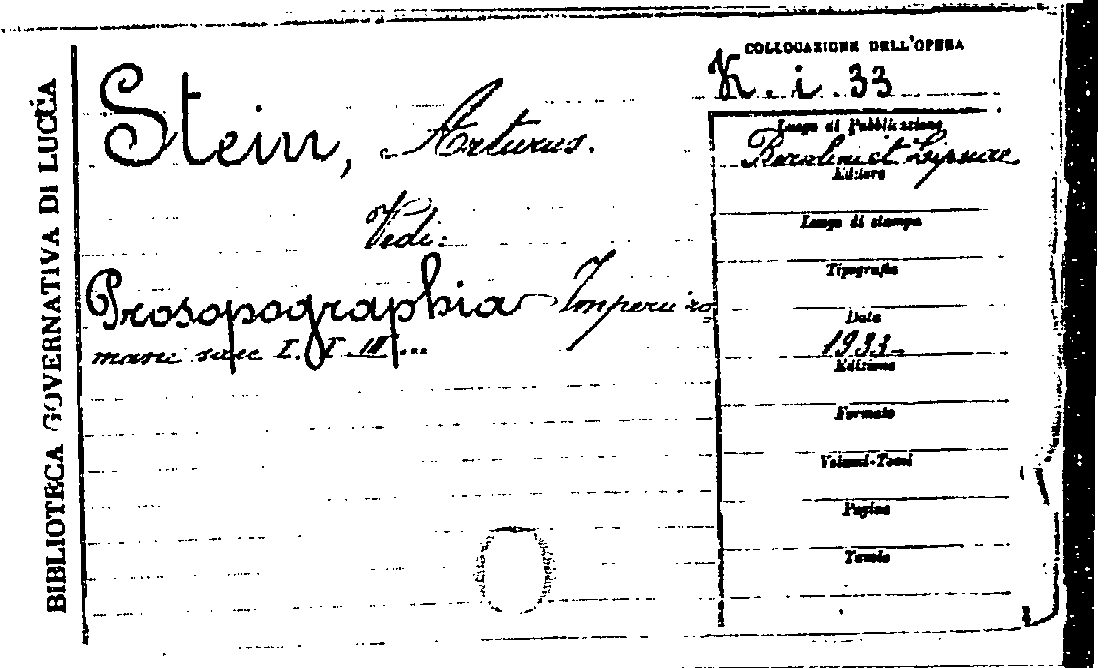 BIBLIOTECA GOVERNATIVA DI LUCCA
Stein, Arturus.
Vedi:
Prosopographia Imperii ro
mani saec I. I. III...
COLLOCAZIONE DELL'OPERA
K. i. 33
Luogo di Pubblicazione
Berolini et Lipsiae
Editore
Luogo di stampa
Tipografia
Data
1933
Edizione
Formato
Volumi-Tomi
Pagine
Tavole